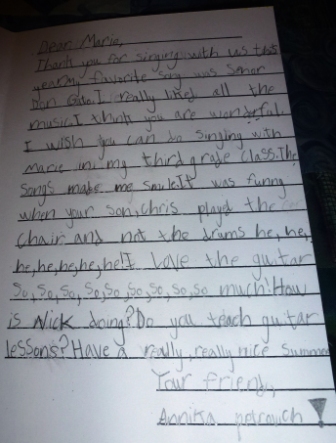 Dear Marie,
Thank you for singing with us this
year. my favorite song was Senor
Don Gato. I really liked all the
music. I think you are wonderful.
I wish you can do singing with
marie in my third grade class. The
songs made me smile. It was funny
when your son, chris played the
chair and not the drums he, he,
he, he, he, he, he! I love the guitar
so, so, so, so, so, so, so, so, so much! How
is Nick doing? Do you teach guitar
lessons? Have a really, really nice summer
Your friend,
Annika !